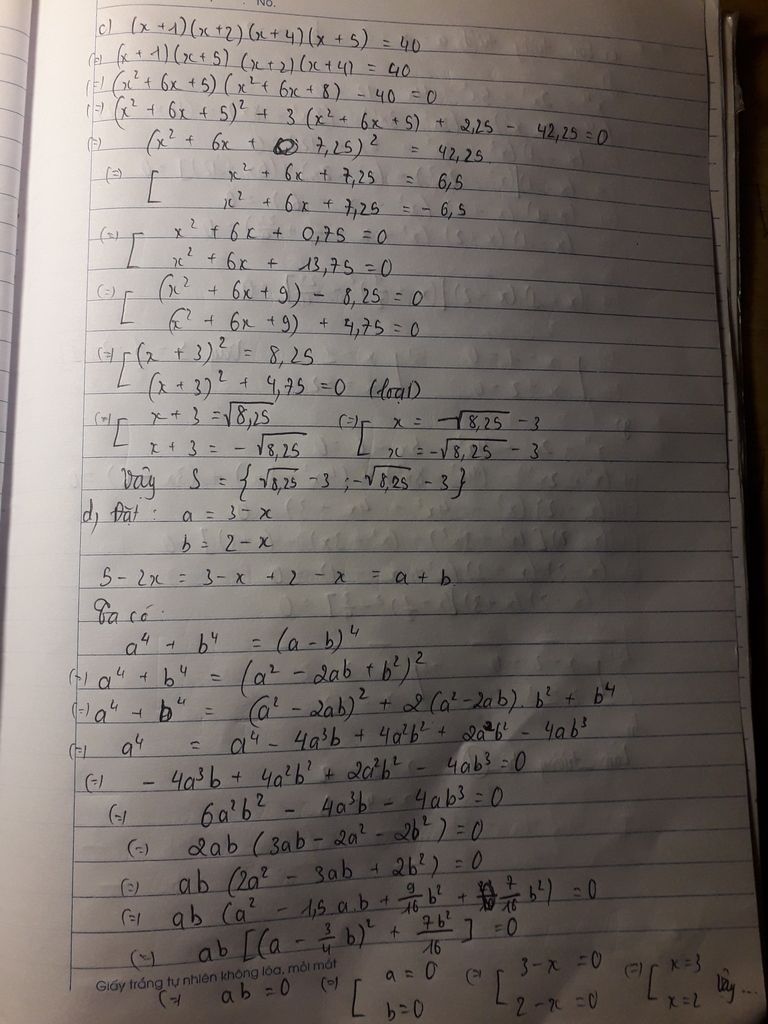 No.
c) (x+1)(x+2)(x+4)(x+5) = 40
(=) (x+1)(x+5)(x+2)(x+4) = 40
(=) (x² + 6x + 5)(x² + 6x + 8) - 40 = 0
(=) (x² + 6x + 5)² + 3(x² + 6x + 5) + 2,25 - 42,25 = 0
(=) (x² + 6x + 7,25)² = 42,25
(=) [ x² + 6x + 7,25 = 6,5
x² + 6x + 7,25 = - 6,5
(=) [ x² + 6x + 0,75 = 0
x² + 6x + 13,75 = 0
(=) [ (x² + 6x + 9) - 8,25 = 0
(x² + 6x + 9) + 4,75 = 0
(=) [ (x + 3)² = 8,25
(x + 3)² + 4,75 = 0 (loại)
(=) [ x + 3 = √8,25 (=) [ x = √8,25 - 3
x + 3 = - √8,25 x = -√8,25 - 3
Vậy S = { √8,25 - 3 ; -√8,25 - 3 }
d, Đặt : a = 3 - x
b = 2 - x
5 - 2x = 3 - x + 2 - x = a + b
Ta có :
a⁴ + b⁴ = (a - b)⁴
(=) a⁴ + b⁴ = (a² - 2ab + b²)²
(=) a⁴ + b⁴ = (a² - 2ab)² + 2(a² - 2ab). b² + b⁴
(=) a⁴ = a⁴ - 4a³b + 4a²b² + 2a²b² - 4ab³
(=) - 4a³b + 4a²b² + 2a²b² - 4ab³ = 0
(=) 6a²b² - 4a³b - 4ab³ = 0
(=) 2ab (3ab - 2a² - 2b²) = 0
(=) ab (2a² - 3ab + 2b²) = 0
(=) ab (a² - 1,5 a.b + 9/16 b² + 7/16 b²) = 0
(=) ab [(a - 3/4 b)² + 7b²/16 ] = 0
Giấy trắng tự nhiên không lóa, mỏi mắt
(=) ab = 0 (=) [ a = 0 (=) [ 3 - x = 0 (=) [ x = 3 Vậy ...
b = 0 2 - x = 0 x = 2